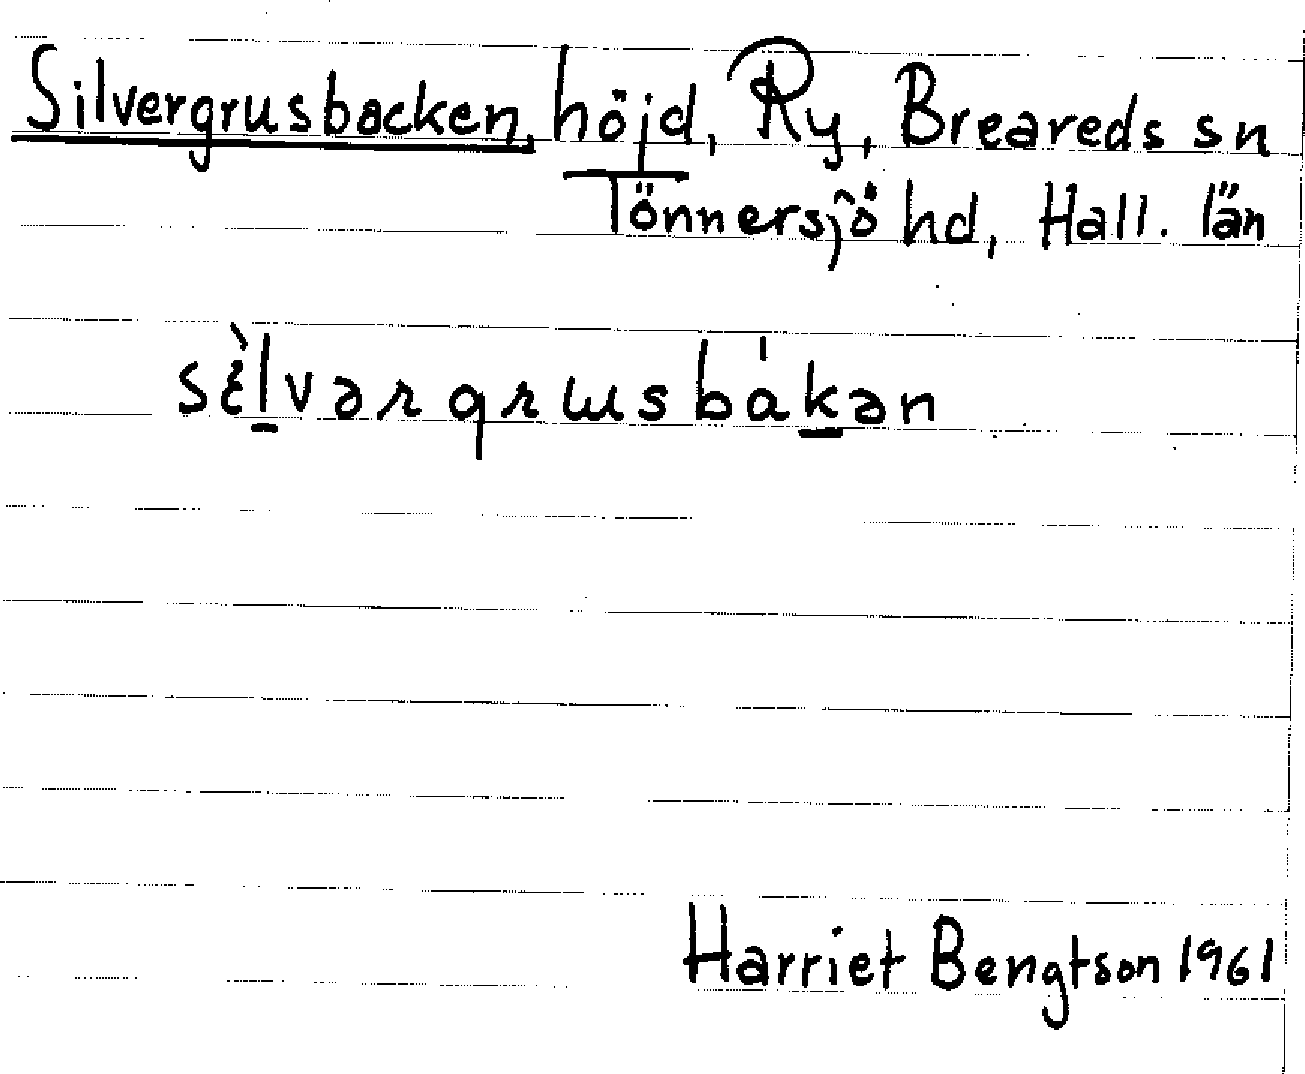 Silvergrusbacken, höjd, Ry, Breareds sn
Tönnersjö hd, Hall. län
sὲlvərgrɯsbákən
Harriet Bengtson 1961